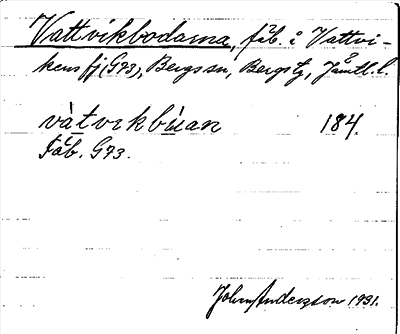 Vattvikbodarna, fäb. å Vattvi-
kens fj (G73), Bergs sn, Bergs tg, Jämtl. l.
vàtvikbùan 184.
Fäb. G73.
John Anderzon 1931.